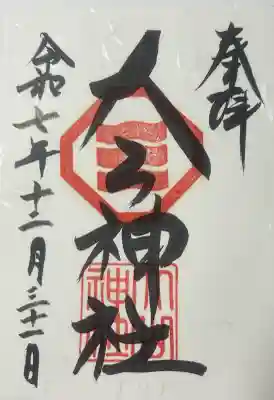 奉拝
大山神社
令和七年十二月三十一日